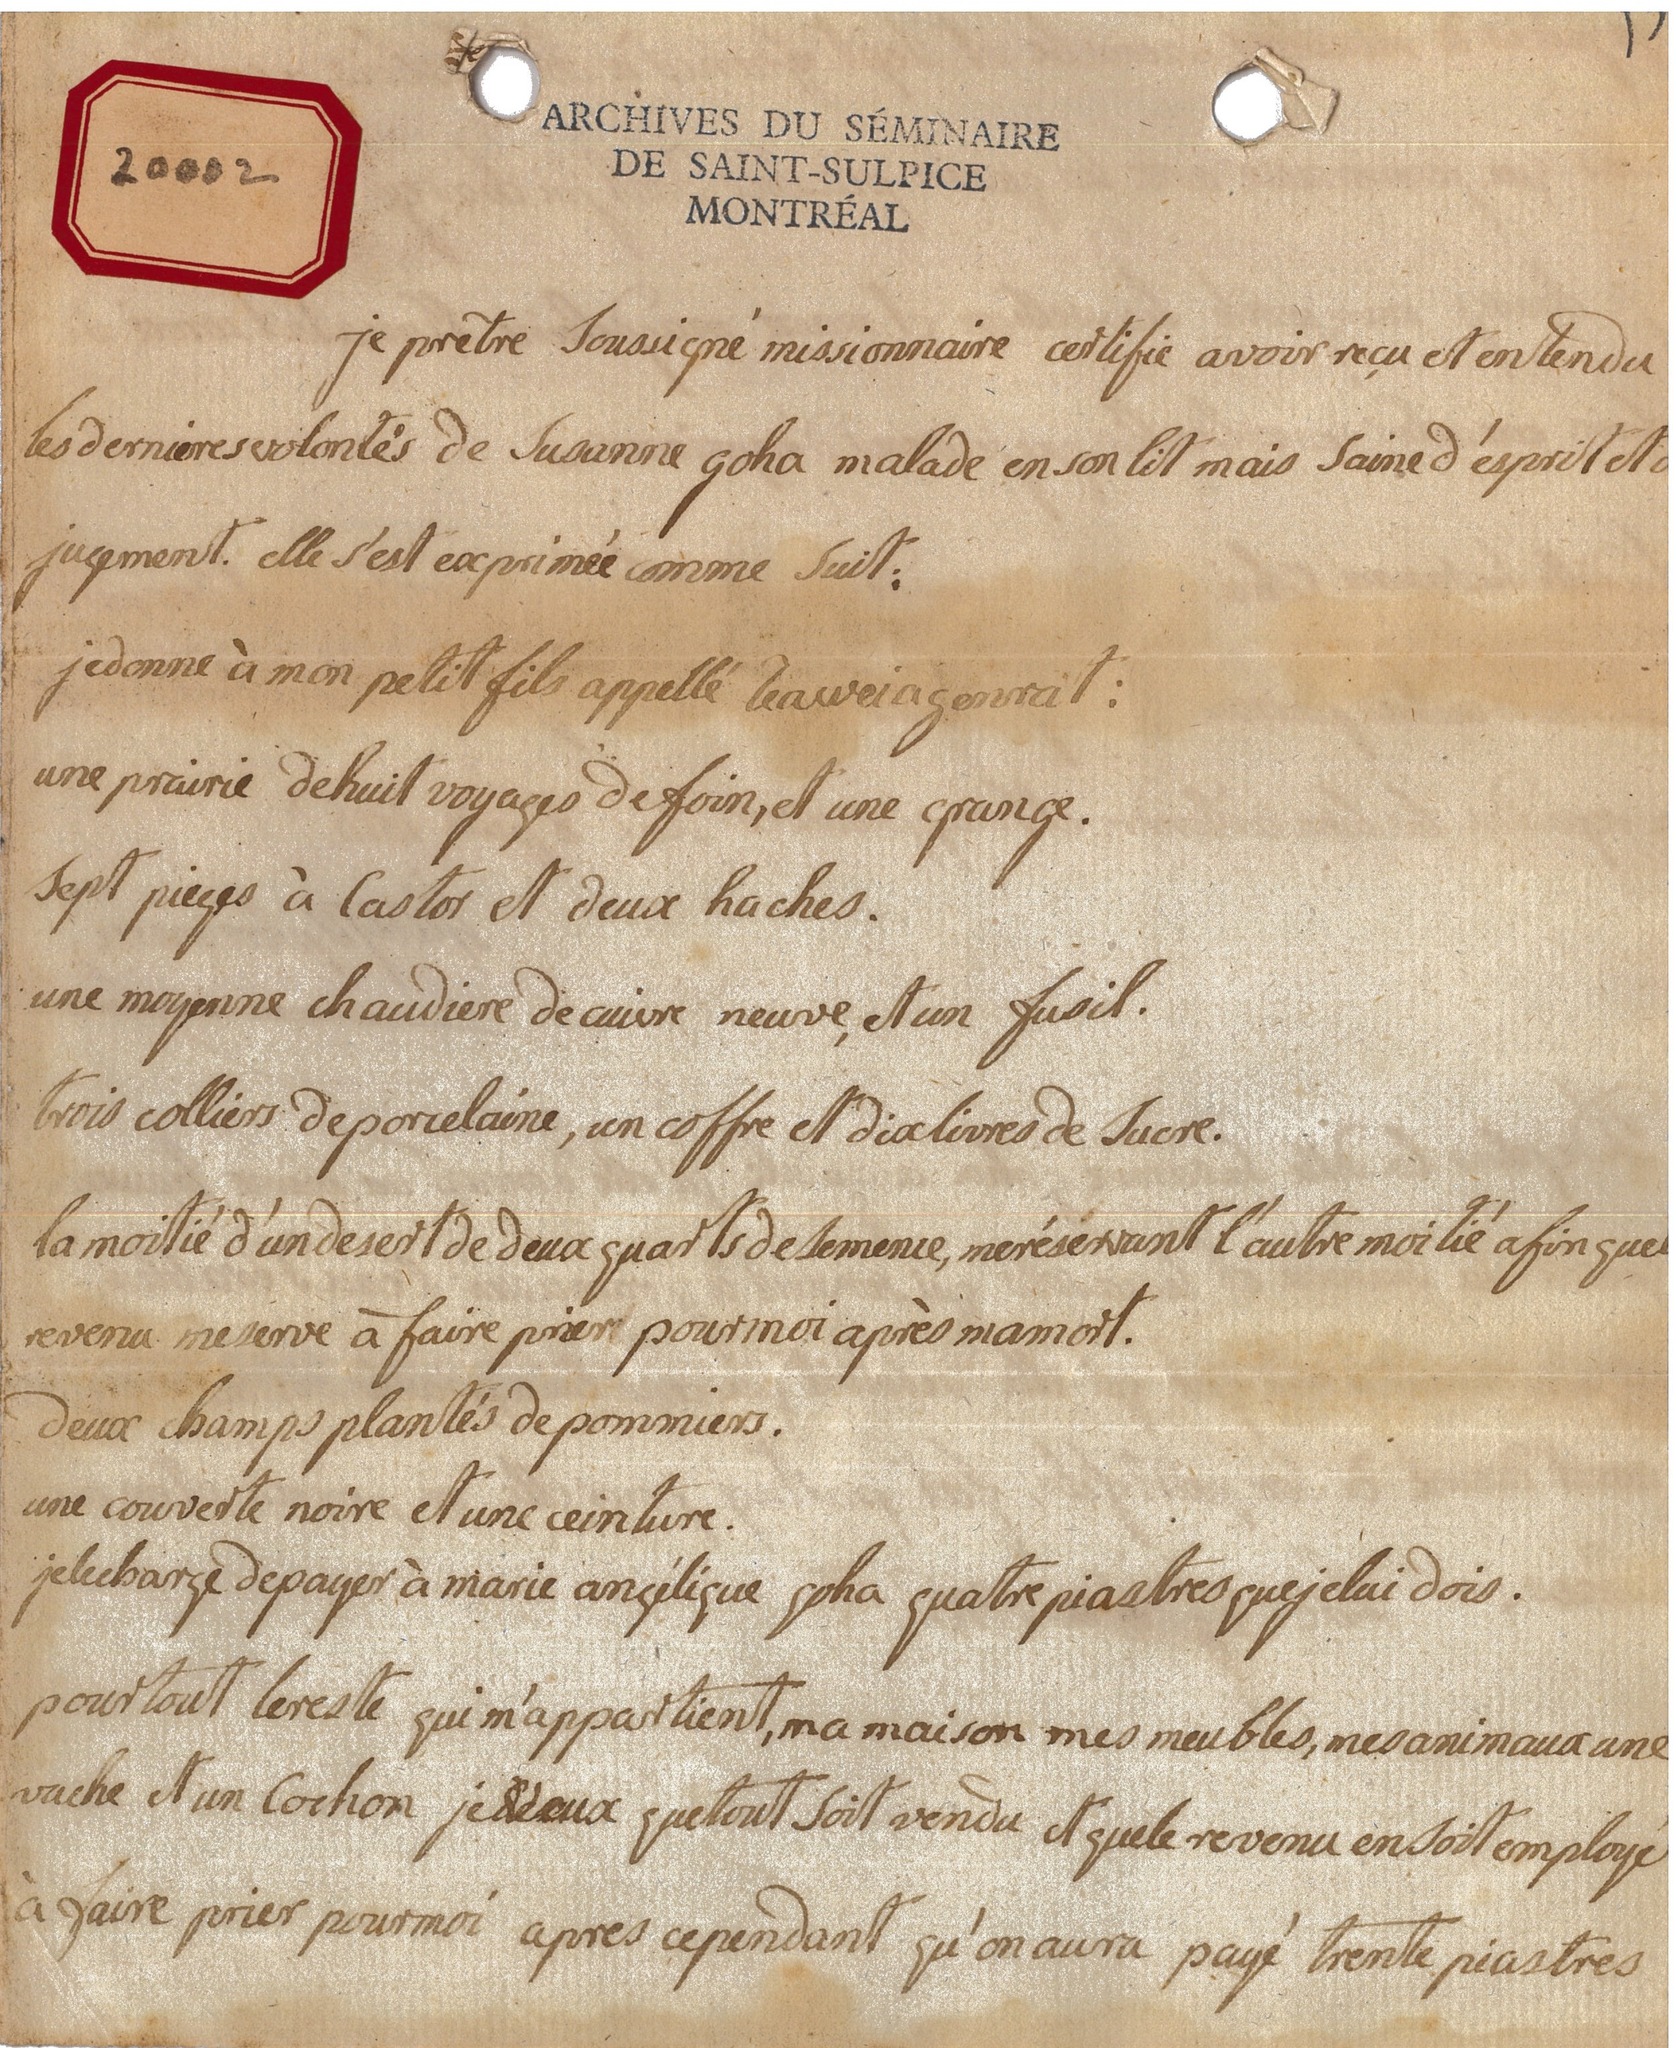 20002
ARCHIVES DU SÉMINAIRE
DE SAINT-SULPICE
MONTRÉAL
je prêtre Soussigné missionnaire certifie avoir reçu et entendu
les dernieres volontés de Susanne goha malade en son lit mais Saine d'ésprit et
jugement. elle s'est exprimée comme Suit:
je donne à mon petit fils appellé teaweiagenrat:
une prairie de huit voyages de foin, et une grange.
Sept pieges à Castor et deux haches.
une moyenne chaudiere de cuivre neuve, et un fusil.
trois colliers de porcelaine, un coffre et dix livres de Sucre.
la moitié d'un desert de deux quarts de Semence, me réservant l'autre moitié afin que
revenu me serve à faire prier pour moi après ma mort.
deux champs plantés de pommiers.
une couverte noire et une ceinture.
je le charge de payer à marie angélique goha quatre piastres que je lui dois.
pour tout le reste qui m'appartient, ma maison mes meubles, mes animaux une
vache et un Cochon je veux que tout Soit vendu et que le revenu en Soit employé
à faire prier pour moi apres cependant qu'on aura payé trente piastres